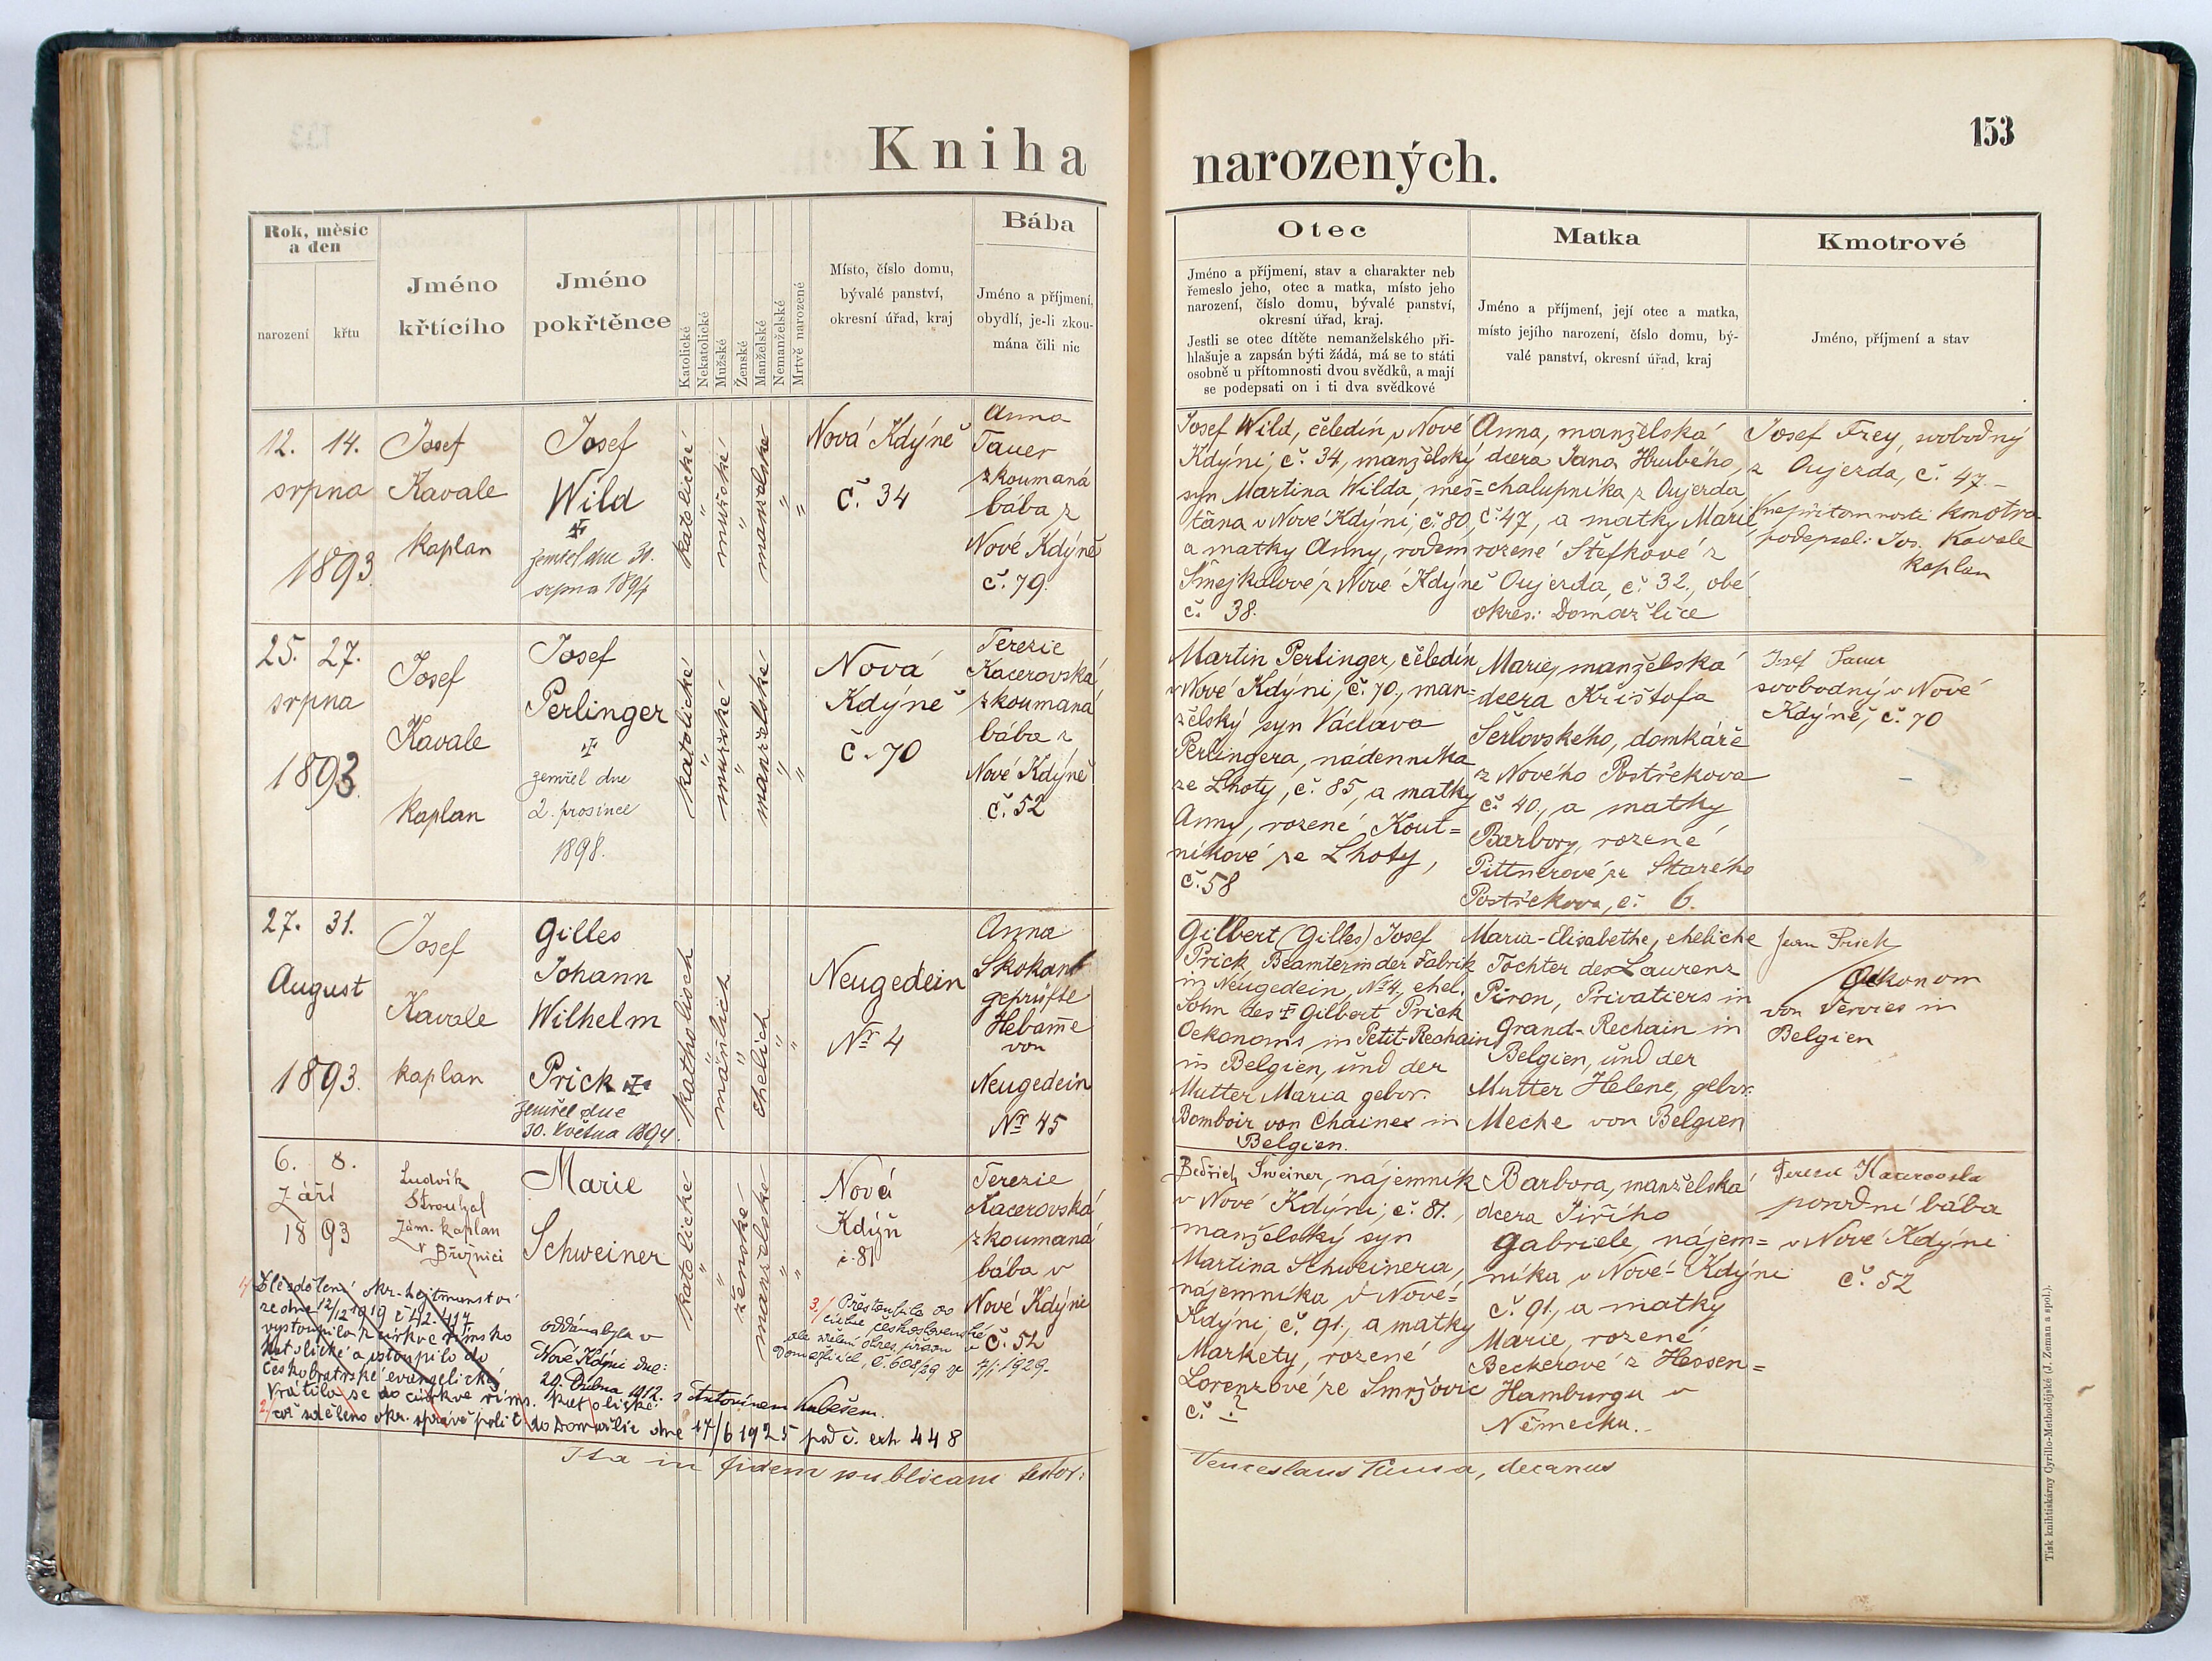 Kniha
narozených.
153
Rok, měsíc
a den
narození
křtu
Jméno
křtícího
Jméno
pokřtěnce
Katolické
Nekatolické
Mužské
Ženské
Manželské
Nemanželské
Mrtvě narozené
Místo, číslo domu,
bývalé panství,
okresní úřad, kraj
Bába
Jméno a příjmení,
obydlí, je-li zkou-
mána čili nic
Otec
Jméno a příjmení, stav a charakter neb
řemeslo jeho, otec a matka, místo jeho
narození, číslo domu, bývalé panství,
okresní úřad, kraj.
Jestli se otec dítěte nemanželského při-
hlašuje a zapsán býti žádá, má se to státi
osobně u přítomnosti dvou svědků, a mají
se podepsati on i ti dva svědkové
Matka
Jméno a příjmení, její otec a matka,
místo jejího narození, číslo domu, bý-
valé panství, okresní úřad, kraj
Kmotrové
Jméno, příjmení a stav
12. 14.
srpna
1893.
Josef
Kavale
kaplan
Josef
Wild
zemřel dne 30.
srpna 1894
katolické
"
mužské
"
manželské
"
"
Nová Kdýně
č. 34
Anna
Tauer
zkoumaná
bába z
Nové Kdýně
č. 79.
Josef Wild, čeledín v Nové
Kdýni, č. 34, manželský
syn Martina Wilda, měš=
ťana v Nové Kdýni, č. 80,
a matky Anny, rodem
Šmejkalové z Nové Kdýně
č. 38.
Anna, manželská
dcera Jana Hrubého,
chalupníka z Oujezda,
č. 47, a matky Marie
rozené Štefkové z
Oujezda, č. 32., obé
okres: Domažlice
Josef Frey, svobodný
z Oujezda, č. 47.-
V nepřítomnosti kmotra
podepsal: Jos. Kavale
kaplan
25. 27.
srpna
1893.
Josef
Kavale
kaplan
Josef
Perlinger
zemřel dne
2. prosince
1898.
katolické
"
mužské
"
manželské
"
"
Nová
Kdýně
č. 70
Terezie
Kacerovská
zkoumaná
bába z
Nové Kdýně
č. 52
Martin Perlinger, čeledín
v Nové Kdýni, č. 70., man=
želský syn Václava
Perlingera, nádenníka
ze Lhoty, č. 85, a matky
Anny, rozené Kout=
níkové ze Lhoty,
č. 58
Marie, manželská
dcera Krištofa
Šerlovského, domkáře
z Nového Postřekova
č. 40., a matky
Barbory, rozené
Pittnerové ze Starého
Postřekova, č. 6.
Josef Tauer
svobodný v Nové
Kdýně, č. 70
27. 31.
August
1893.
Josef
Kavale
kaplan
Gilles
Johann
Wilhelm
Prick
zemřel dne
30. května 1894.
katholisch
"
mäñlich
"
ehelich
"
"
Neugedein
Nr 4
Anna
Skokant
geprüfte
Hebam̄e
von
Neugedein
Nr 45
Gilbert (Gilles) Josef
Prick Beamter in der Fabrik
in Neugedein, Nr 4., ehel.
Sohn des † Gilbert Prick
Oekonoms in Petit-Rechain
in Belgien, und der
Mutter Maria gebor.
Bomboir von Chaines in
Belgien.
Maria-Elisabethe, eheliche
Tochter des Laurenz
Piron, Privatiers in
Grand-Rechain in
Belgien, und der
Mutter Helene, gebor.
Meche von Belgien
Jean Prick
Oekonom
von Vervies in
Belgien
6. 8.
Září
1893
Ludvík
Strouhal
zám. kaplan
v Březnici
Marie
Schweiner
katolické
"
ženské
"
manželské
"
"
Nová
Kdýň
č. 81
Terezie
Kacerovská
zkoumaná
bába v
Nové Kdýni
č. 52
Bedřich Šweiner, nájemník
v Nové Kdýni, č. 81.,
manželský syn
Martina Schweinera,
nájemníka v Nové=
Kdýni, č. 91., a matky
Markety, rozené
Lorenzové ze Smržovic
č. ?
Barbora, manželská
dcera Jiřího
Gabriele, nájem=
níka v Nové-Kdýni
č. 91, a matky
Marie, rozené
Beckerové z Hessen=
Hamburgu v
Německu.-
Terezie Kacerovska
porodní bába
v Nové Kdýni
č. 52
1/ Dle sdělení okr. hejtmanství
ze dne 12/12 1919 č 42.117
vystoupila z církve římsko
katolické a vstoupila do
českobratrské evangelické
Vrátila se do církve řím. katolické
2/ což sděleno okr. správě polit. do Domažlic dne 17/6 1925 pod č. exh 448
oddána byla v
Nové Kdýni dne:
20. Dubna 1912.
s Antonínem Kubešem.
3./ Přestoupila do
církve československé
dle sdělení okres. úřadu v
Domažlicích, č. 608/29 ze
7/1 1929.
Ita in fidem publicam testor:
Venceslaus Tůma, decanus
Tisk knihtiskárny Cyrillo-Methodějské (J. Zeman a spol.).